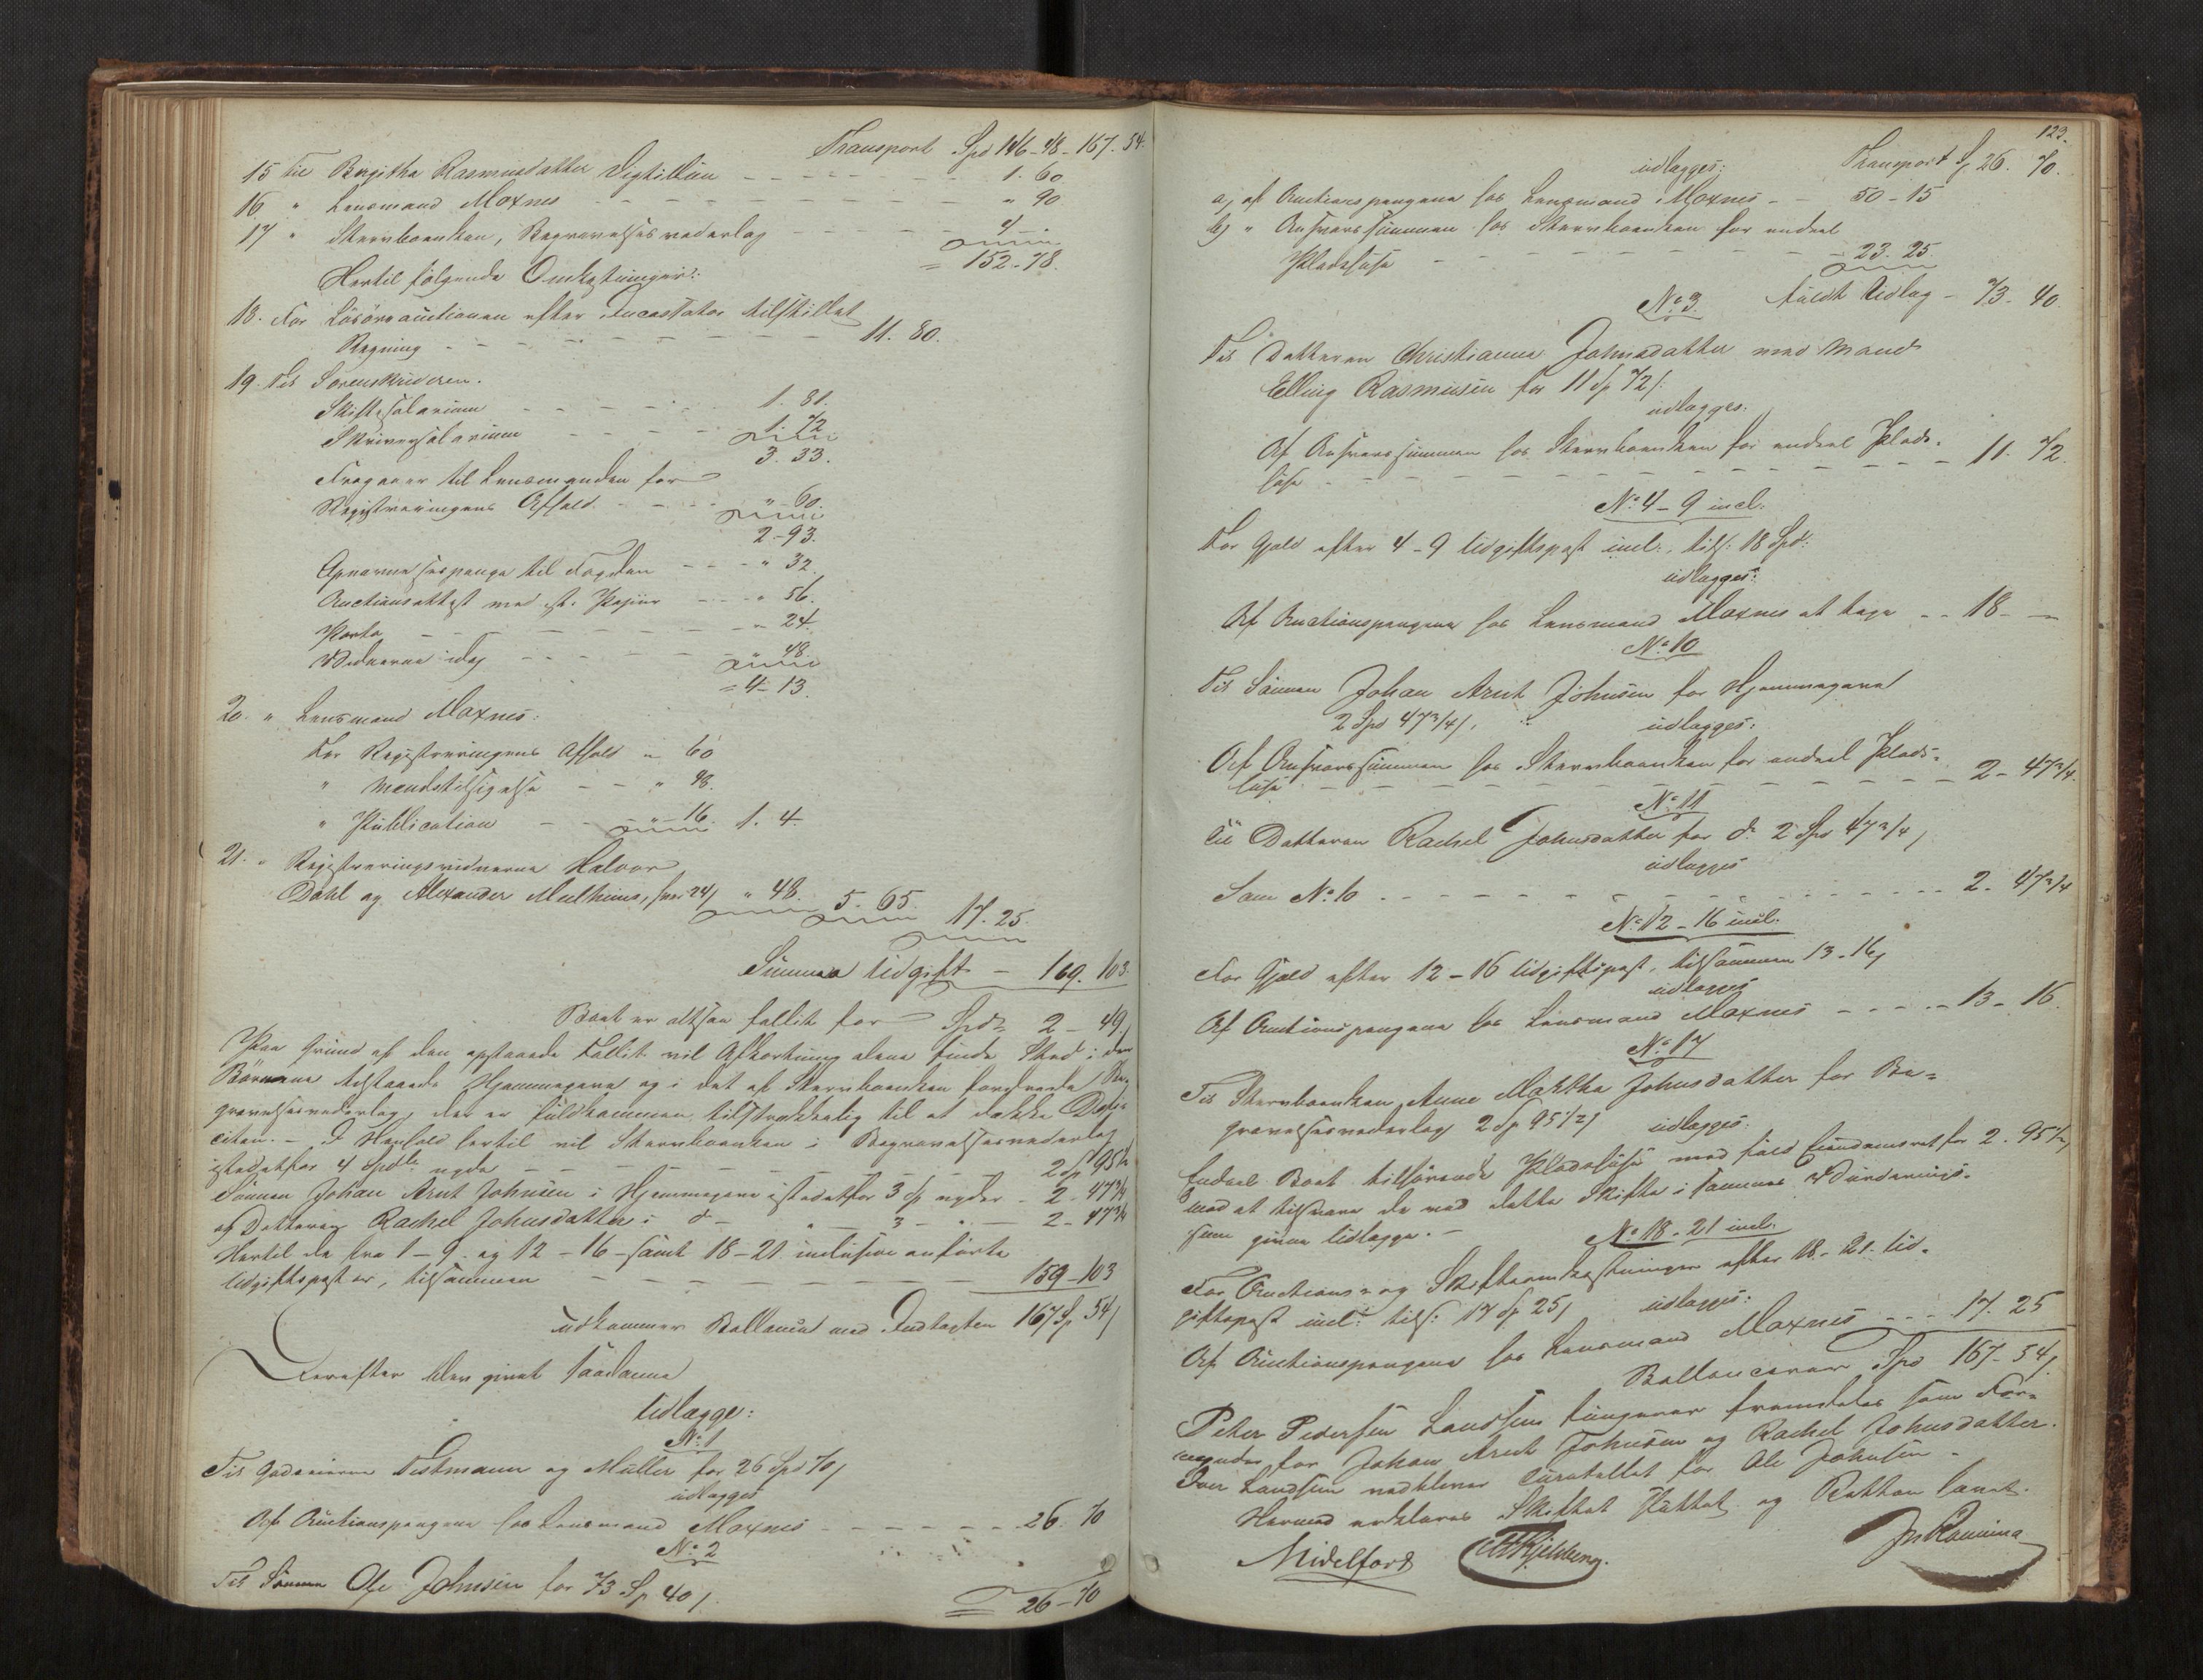 Transport Spd 146-48-167.54.
15 Til Birgitha Rasmusdatter Digtilluu - - - 1. 60.
16. " Lensmand Moxnes - - - " 90
17 " Stervboenken, Begravelsesvederlag - - - 4 -
= 152-78.
Hertil følgende Omkostninger:
18. For Løsøreauctionen efter Incassator tilstillet
Regning - - - 11. 80.
19. Til Sorenskriveren.
Skiftesalarium - - - 1. 81.
Skriversalarium - - - 1. 72
3. 33.
Fragaaer til Lensmanden for
Registreringens Afhold - - - " 60.
2-93.
til Fogden - - - " 32.
Auctionsattest med st. Papiir - - - " 56.
Porto - - - " 24.
Vidnerne idag - - - " 48.
= 4-13.
20. " Lensmand Moxnes:
For Registreringens Afhold - " 60
" Mændstilsigelse - - " 48.
" Publication - - " 16. 1. 4.
21. " Registreringsvidnerne Halvor
Dahl og Alexander Melhuus, hver 24/ " 48. 5. 65. 17. 25.
Summa Udgift - 169. 103.
Boet er altsaa fallit for Spd 2-49/
Paa Grund af den opstaaede Fallit vil Afkortning alene finde Sted i den
Børnene tilstaaede Hjemmegave og i det af Stervboenken fordrede Be-
gravelsesvederlag, der er fuldkommen tilstrækkelig til at dække Defi-
citen. - I Henhold hertil vil Stervboenken i Begravelsesvederlag
istedetfor 4 Spdlr nyde - - - 2 Sp 95 1/2
Sønnen Johan Arnt Johnsen i Hjemmegave istedetfor 3 Sp nyder - 2-47 3/4
og Datteren Rachel Johnsdatter i do - " - 3 - " - 2-47 3/4
Hertil de fra 1-9 og 12-16 samt 18-21 inclusive anførte
Udgiftsposter, tilsammen - - - 159-103
udkommer Ballance med Indtægten 167 Sp 54/
Derefter blev givet saadanne
Udlægge:
No 1
Til Gadeierne Tidtmann og Müller for 26 Spd 70/
udlægges
Af Auctionspengene hos Lensmand Moxnes - - - 26. 70
No 2
Til Sønnen Ole Johnsen for 73 Sp 40/.
26-70
123.
Transport Sp 26. 70.
udlægges:
a, af Auctionspengene hos Lensmand Moxnes - - 50-15
b, " Ansvarssummen hos Stervboenken for endeel
Pladshuse - - - 23. 25.
fuldt Udlag - 73-40
No 3.
Til Datteren Christianna Johnsdatter med Mand
Elling Rasmusen for 11 Sp 72/:
udlægges:
Af Ansvarssummen hos Stervboenken for endeel Plads-
huse - - - 11. 72.
No 4-9 incl:
For Gjæld efter 4-9 Udgiftspost incl:, tils: 18 Spd:
udlægges:
Af Auctionspengene hos Lensmand Moxnes at tage - - 18- "
No 10
Til Sønnen Johan Arnt Johnsen for Hjemmegave
2 Spd 47 3/4/. udlægges:
Af Ansvarssummen hos Stervboenken for endeel Plads-
huse - - - 2-47 3/4.
No 11
Til Datteren Rachel Johnsdatter for do 2 Spd 47 3/4/
udlægges
Som No 10 - - - 2. 47 3/4
No 12-16 incl.
For Gjæld efter 12-16 Udgiftspost, tilsammen 13-16/
udlægges
Af Auctionspengene hos Lensmand Moxnes - - - 13-16.
No 17
Til Stervboenken Anne Martha Johnsdatter for Be-
gravelsesvederlag 2 Sp 95 1/2/ udlægges:
Endeel Boet tilhørende Pladshuse med fuld Eiendomsret for 2. 95 1/2/
mod at tilsvare de ved dette Skifte i sammes Vurderings-
sum givne Udlægge. -
No 18-21 incl.
For Auctions- og Skifteomkostninger efter 18-21 Ud-
giftspost incl: tils: 17 Sp 25/ udlægges:
Af Auctionspengene hos Lensmand Moxnes - - - 17. 25
Ballancerer Spd 167-54/
Peter Pedersen Landsem fungerer fremdeles som For-
mynder for Johan Arnt Johnsen og Rachel Johnsdatter.
Iver Landsem vedbliver Curatellet for Ole Johnsen. -
Hermed erklæres Skiftet sluttet og Retten hævet.
Midelfart